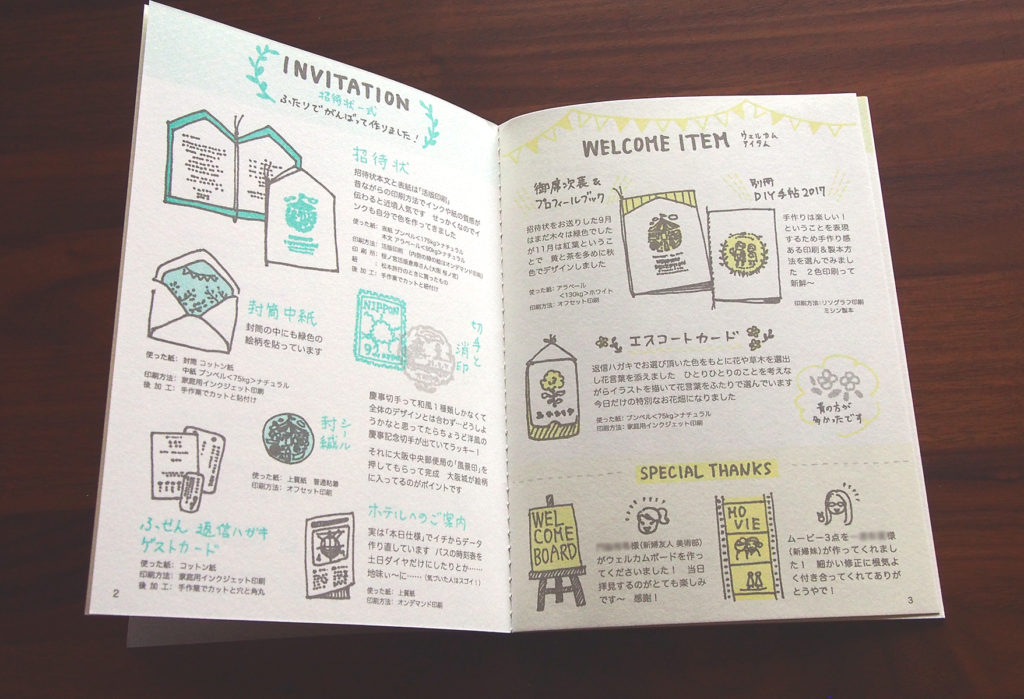 INVITATION
招待状一式
ふたりでがんばって作りました!
招待状
招待状本文と表紙は「活版印刷」
昔ながらの印刷方法でインクや紙の質感が
伝わると近頃人気です せっかくなのでイ
ンクも自分で色を作ってきました
使った紙: 表紙 ブンペル<175kg>ナチュラル
本文 アラベール<90kg>ナチュラル
印刷方法: 活版印刷 (内側の緑の紙はオンデマンド印刷)
印 刷 所: 桜ノ宮活版倉庫さん(大阪 桜ノ宮)
紐 : 松本旅行のときに買ったもの
後 加 工: 手作業でカットと紐付け
封筒中紙
封筒の中にも緑色の
絵柄を貼っています
使った紙: 封筒 コットン紙
中紙 ブンペル<75kg>ナチュラル
印刷方法: 家庭用インクジェット印刷
後 加 工: 手作業でカットと貼付け
NIPPON
92
切手と
消印
慶事切手って和風1種類しかなくて
全体のデザインとは合わず…どうしよ
うかなと思ってたらちょうど洋風の
慶事記念切手が出ていてラッキー!
それに大阪中央郵便局の「風景印」を
押してもらって完成 大阪城が絵柄
に入ってるのがポイントです
封緘
シール
使った紙: 上質紙 普通粘着
印刷方法: オフセット印刷
ふせん 返信ハガキ
ゲストカード
使った紙: コットン紙
印刷方法: 家庭用インクジェット印刷
後 加 工: 手作業でカットと穴と角丸
ホテルへのご案内
実は「本日仕様」でイチからデータ
作り直しています バスの時刻表を
土日ダイヤだけにしたりとか……
地味ぃ〜に…… (気づいた人はスゴイ!)
使った紙: 上質紙
印刷方法: オンデマンド印刷
2
WELCOME ITEM
ウェルカム
アイテム
御席次表&
プロフィールブック
招待状をお送りした9月
はまだ木々は緑色でした
が11月は紅葉というこ
とで 黄と茶を多めに秋
色でデザインしました
使った紙: アラベール
<130kg>ホワイト
印刷方法: オフセット印刷
別冊
DIY手帖2017
手作りは楽しい!
ということを表現
するため手作り感
ある印刷&製本方
法を選んでみまし
た 2色印刷って
新鮮〜
印刷方法:リソグラフ印刷
ミシン製本
エスコートカード
返信ハガキでお選び頂いた色をもとに花や草木を選出
し花言葉を添えました ひとりひとりのことを考えな
がらイラストを描いて花言葉をふたりで選んでいます
今日だけの特別なお花畑になりました
使った紙: ブンペル<75kg>ナチュラル
印刷方法: 家庭用インクジェット印刷
黄の方が
多かったです
SPECIAL THANKS
WEL
COME
BOARD
様(新婦友人 美術部)
がウェルカムボードを作っ
てくださいました! 当日
拝見するのがとても楽しみ
です〜 感謝!
MO
VIE
ムービー3点を 様
(新婦妹)が作ってくれまし
た! 細かい修正に根気よ
く付き合ってくれてありが
とうやで!
3